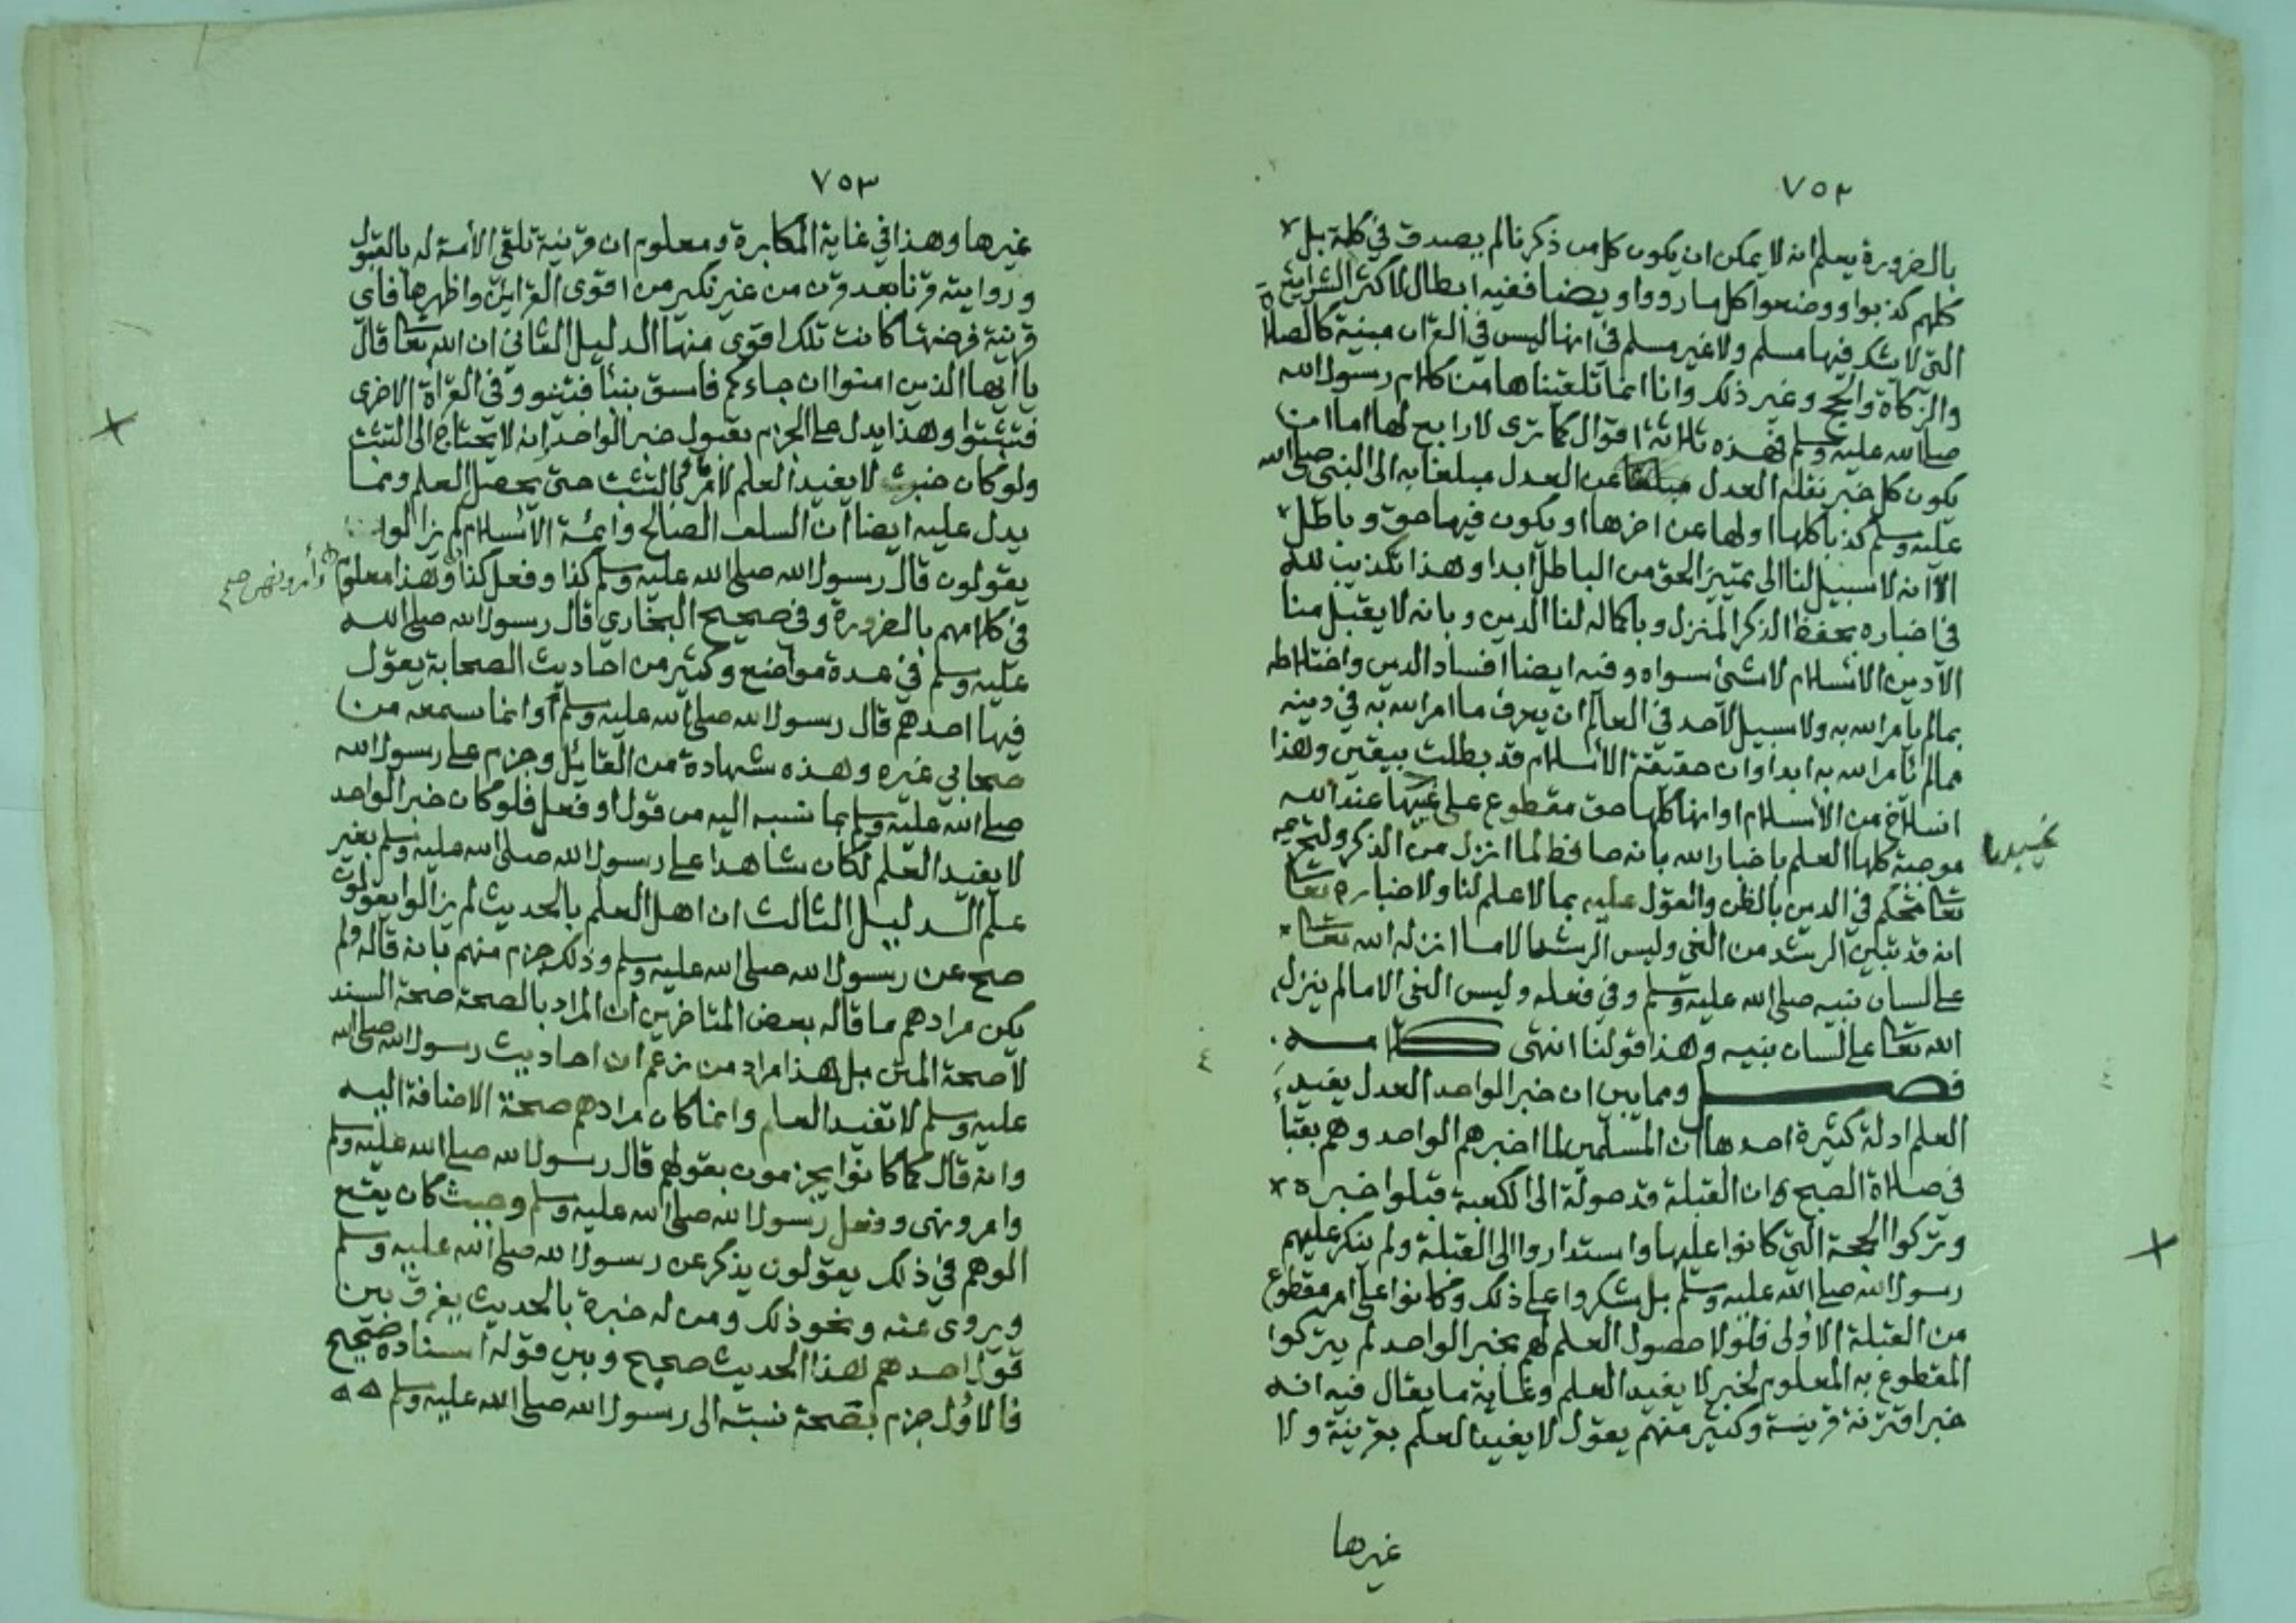 ٧٥٢
بالضرورة يعلم انه لا يمكن ان يكون كل من ذكرنا لم يصدق في كلمة بل
كلهم كذبوا ووضعوا كل ما رووا وايضا ففيه ابطال لاكثر الشرايع
التي لا يشك فيها مسلم ولا غير مسلم في انها ليس في القران مبينة كالصلاة
والزكاة والحج وغير ذلك وانا انما تلقيناها من كلام رسول الله
صلى الله عليه وسلم فهذه ثلاثة اقوال كما ترى لا رابع لها اما ان
يكون كل خبر نقله العدل عن العدل مبلغا به الى النبي صلى الله
عليه وسلم كذبا كلها اولها عن اخرها او يكون فيها حق وباطل
الا انه لا سبيل لنا الى تمييز الحق من الباطل ابدا وهذا تكذيب لله
في اخباره بحفظ الذكر المنزل وباكماله لنا الدين وبانه لا يقبل منا
الا دين الاسلام لا شئ سواه وفيه ايضا افساد الدين واختلاطه
بما لم يامر الله به ولا سبيل لاحد في العالم ان يعرف ما امر الله به في دينه
مما لم يامر الله به ابدا وان حقيقة الاسلام قد بطلت بيقين وهذا
انسلاخ من الاسلام او انها كلها حق مقطوع على غيبها عند الله
موجبة كلها العلم باخبار الله بانه حافظ لما انزل من الذكر ولتحريمه
تعالى الحكم في الدين بالظن والقول عليه بما لا علم لنا ولاخباره تعالى
انه قد تبين الرشد من الغي وليس الرشد الا ما انزله الله تعالى
على لسان نبيه صلى الله عليه وسلم وفي فعله وليس الغي الا ما لم ينزل
الله تعالى على لسان نبيه وهذا قولنا انتهى كلامه
فصل ومما يبين ان خبر الواحد العدل يفيد
العلم ادلة كثيرة احدها ان المسلمين لما اخبرهم الواحد وهم بقبا
في صلاة الصبح ان القبلة قد حولت الى الكعبة قبلوا خبره
وتركوا الحجة التي كانوا عليها واستداروا الى القبلة ولم ينكر عليهم
رسول الله صلى الله عليه وسلم بل شكروا على ذلك وكانوا على امر مقطوع
من القبلة الاولى فلولا حصول العلم لهم بخبر الواحد لم يتركوا
المقطوع به المعلوم لخبر لا يفيد العلم وغاية ما يقال فيه انه
خبر اقترنة قرينة وكثير منهم يقول لا يفيد العلم بقرينة ولا
غيرها
٧٥٣
غيرها وهذا في غاية المكابرة ومعلوم ان قرينة تلقي الامة له بالقبول
وروايته قرنا بعد قرن من غير نكير من اقوى القراين واظهرها فاي
قرينة فرضتها كانت تلك اقوى منها الدليل الثاني ان الله تعالى قال
يا ايها الذين امنوا ان جاءكم فاسق بنبأ فتبينوا وفي القراة الاخرى
فتثبتوا وهذا يدل على الجزم بقبول خبر الواحد انه لا يحتاج الى التثبت
ولو كان خبره لا يفيد العلم لامر بالتثبت حتى يحصل العلم ومما
يدل عليه ايضا ان السلف الصالح وايمة الاسلام لم يزالوا
يقولون قال رسول الله صلى الله عليه وسلم كذا وفعل كذا وهذا معلوم
وأمر ونهى صح
في كلامهم بالضرورة وفي صحيح البخاري قال رسول الله صلى الله
عليه وسلم في عدة مواضع وكثير من احاديث الصحابة يقول
فيها احدهم قال رسول الله صلى الله عليه وسلم وانما سمعه من
صحابي غيره وهذه شهادة من القائل وجزم على رسول الله
صلى الله عليه وسلم بما نسبه اليه من قول او فعل فلو كان خبر الواحد
لا يفيد العلم لكان شاهدا على رسول الله صلى الله عليه وسلم بغير
علم الدليل الثالث ان اهل العلم بالحديث لم يزالوا يقولون
صح عن رسول الله صلى الله عليه وسلم وذلك جزم منهم بانه قاله ولم
يكن مرادهم ما قاله بعض المتاخرين ان المراد بالصحة صحة السند
لا صحة المتن بل هذا مراد من زعم ان احاديث رسول الله صلى الله
عليه وسلم لا تفيد العلم وانما كان مرادهم صحة الاضافة اليه
وانه قال كما كانوا يجزمون بقولهم قال رسول الله صلى الله عليه وسلم
وامر ونهى وفعل رسول الله صلى الله عليه وسلم وحيث كان يقع
الوهم في ذلك يقولون يذكر عن رسول الله صلى الله عليه وسلم
ويروى عنه ونحو ذلك ومن له خبرة بالحديث يفرق بين
قول احدهم هذا الحديث صحيح وبين قوله اسناده صحيح
فالاول جزم بصحة نسبته الى رسول الله صلى الله عليه وسلم